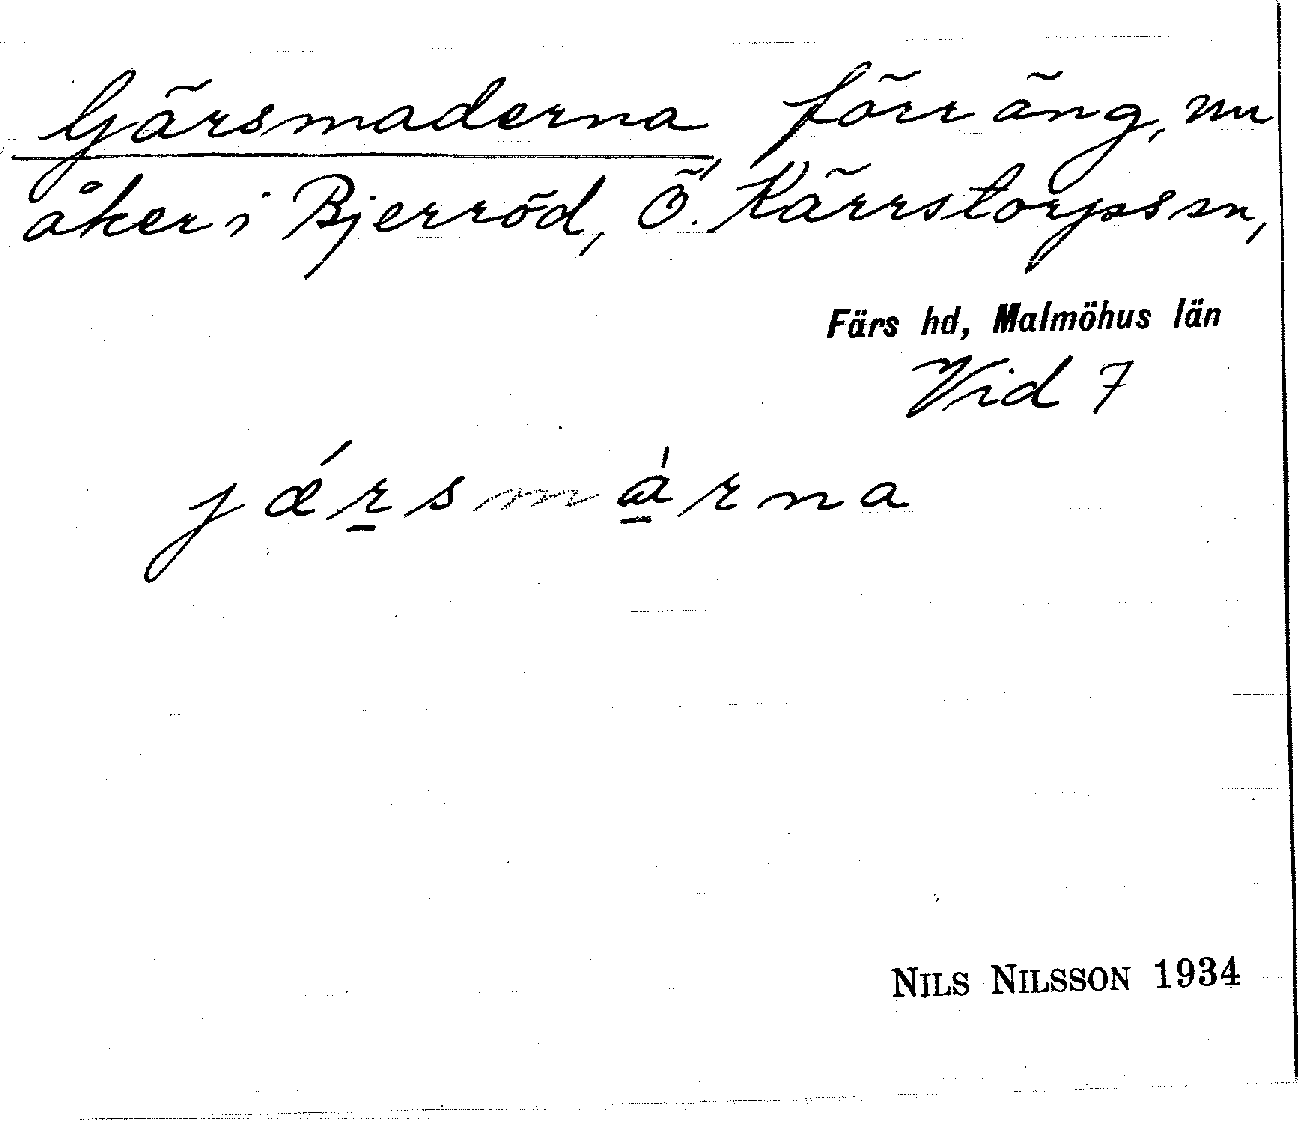 Gärsmaderna, förr äng, nu
åker i Bjerröd, Ö. Kärrstorps sn,
Färs hd, Malmöhus län
Vid 7
jǽr̲smɑ̲́rna
NILS NILSSON 1934